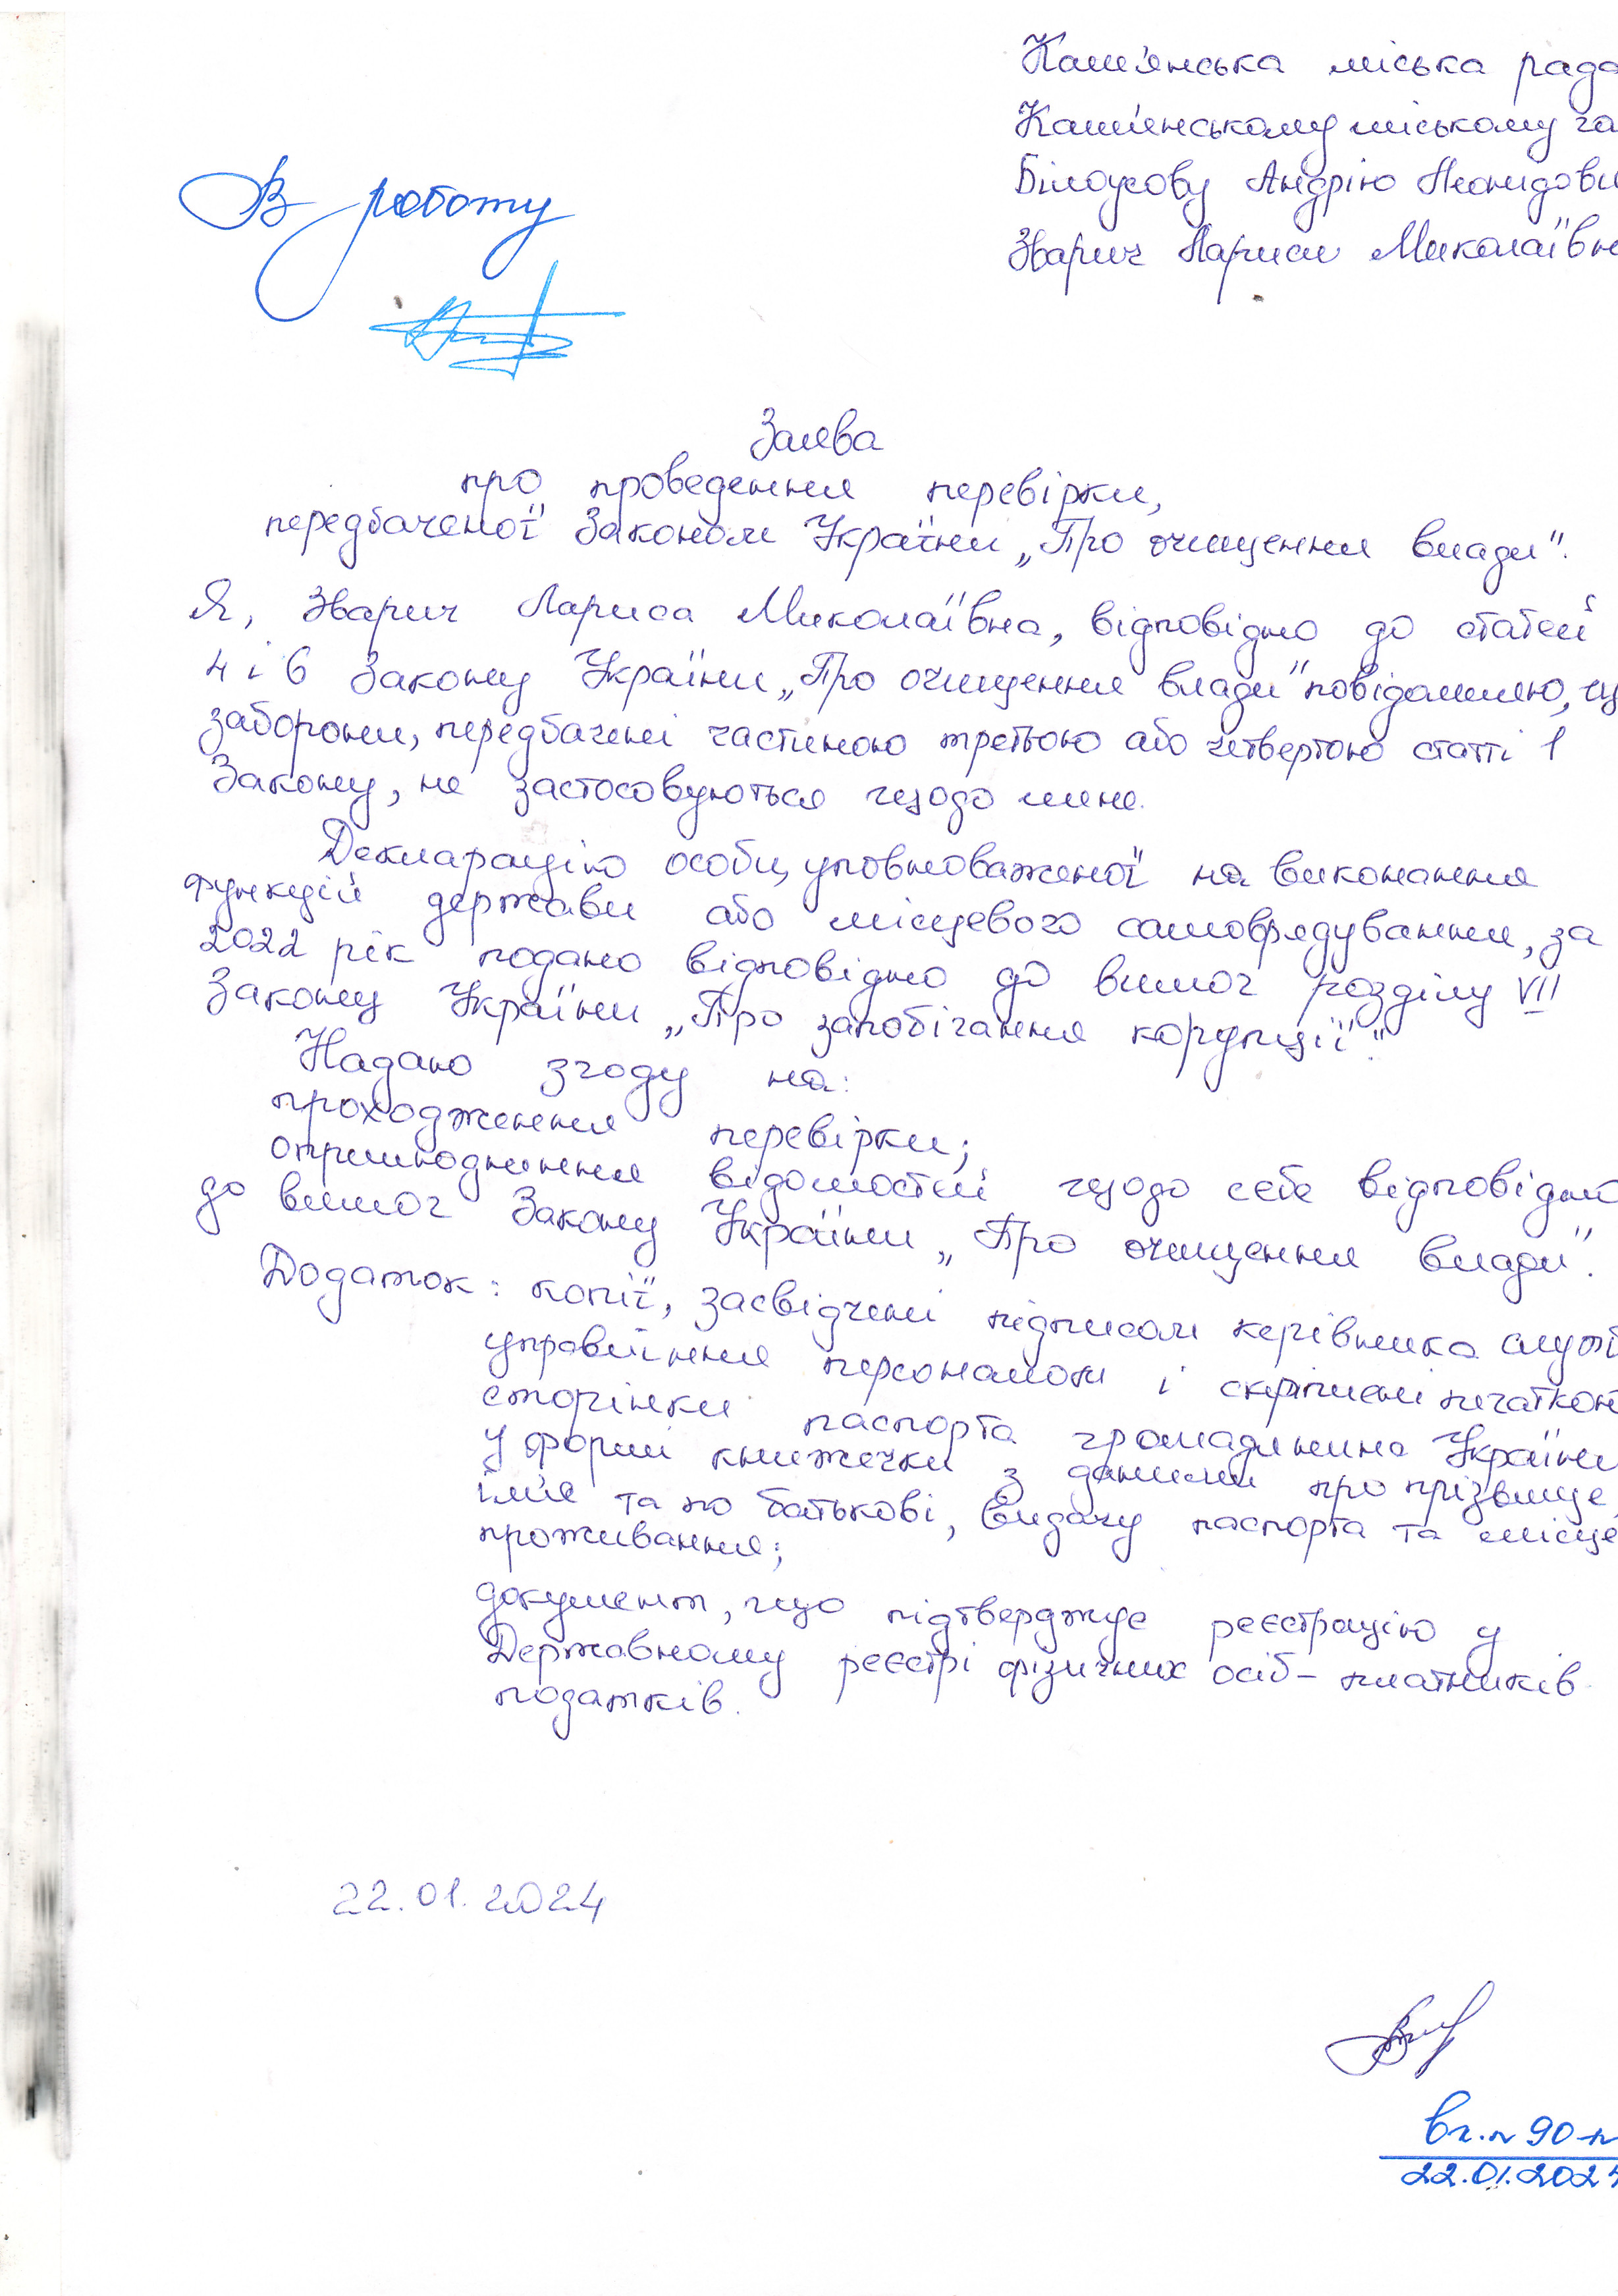 Кам'янська міська рада
Кам'янському міському го
Білоусову Андрію Леонідови
Зварич Лариси Миколаївн
В роботу
Заява
про проведення перевірки,
передбаченої Законом України „Про очищення влади".
Я, Зварич Лариса Миколаївна, відповідно до статей
4 і 6 Закону України „Про очищення влади" повідомляю, що
заборони, передбачені частиною третьою або четвертою статті 1
Закону, не застосовуються щодо мене.
Декларацію особи, уповноваженої на виконання
функцій держави або місцевого самоврядування, за
2022 рік подано відповідно до вимог розділу VII
Закону України „Про запобігання корупції".
Надаю згоду на:
проходження перевірки;
оприлюднення відомостей щодо себе відповідно
до вимог Закону України „Про очищення влади".
Додаток: копії, засвідчені підписом керівника служб
управління персоналом і скріплені печаткою
сторінки паспорта громадянина України
у формі книжечки з даними про прізвище,
ім'я та по батькові, видачу паспорта та місце
проживання;
документ, що підтверджує реєстрацію у
Державному реєстрі фізичних осіб – платників
податків.
22.01.2024
Вх. № 90-п
22.01.2024